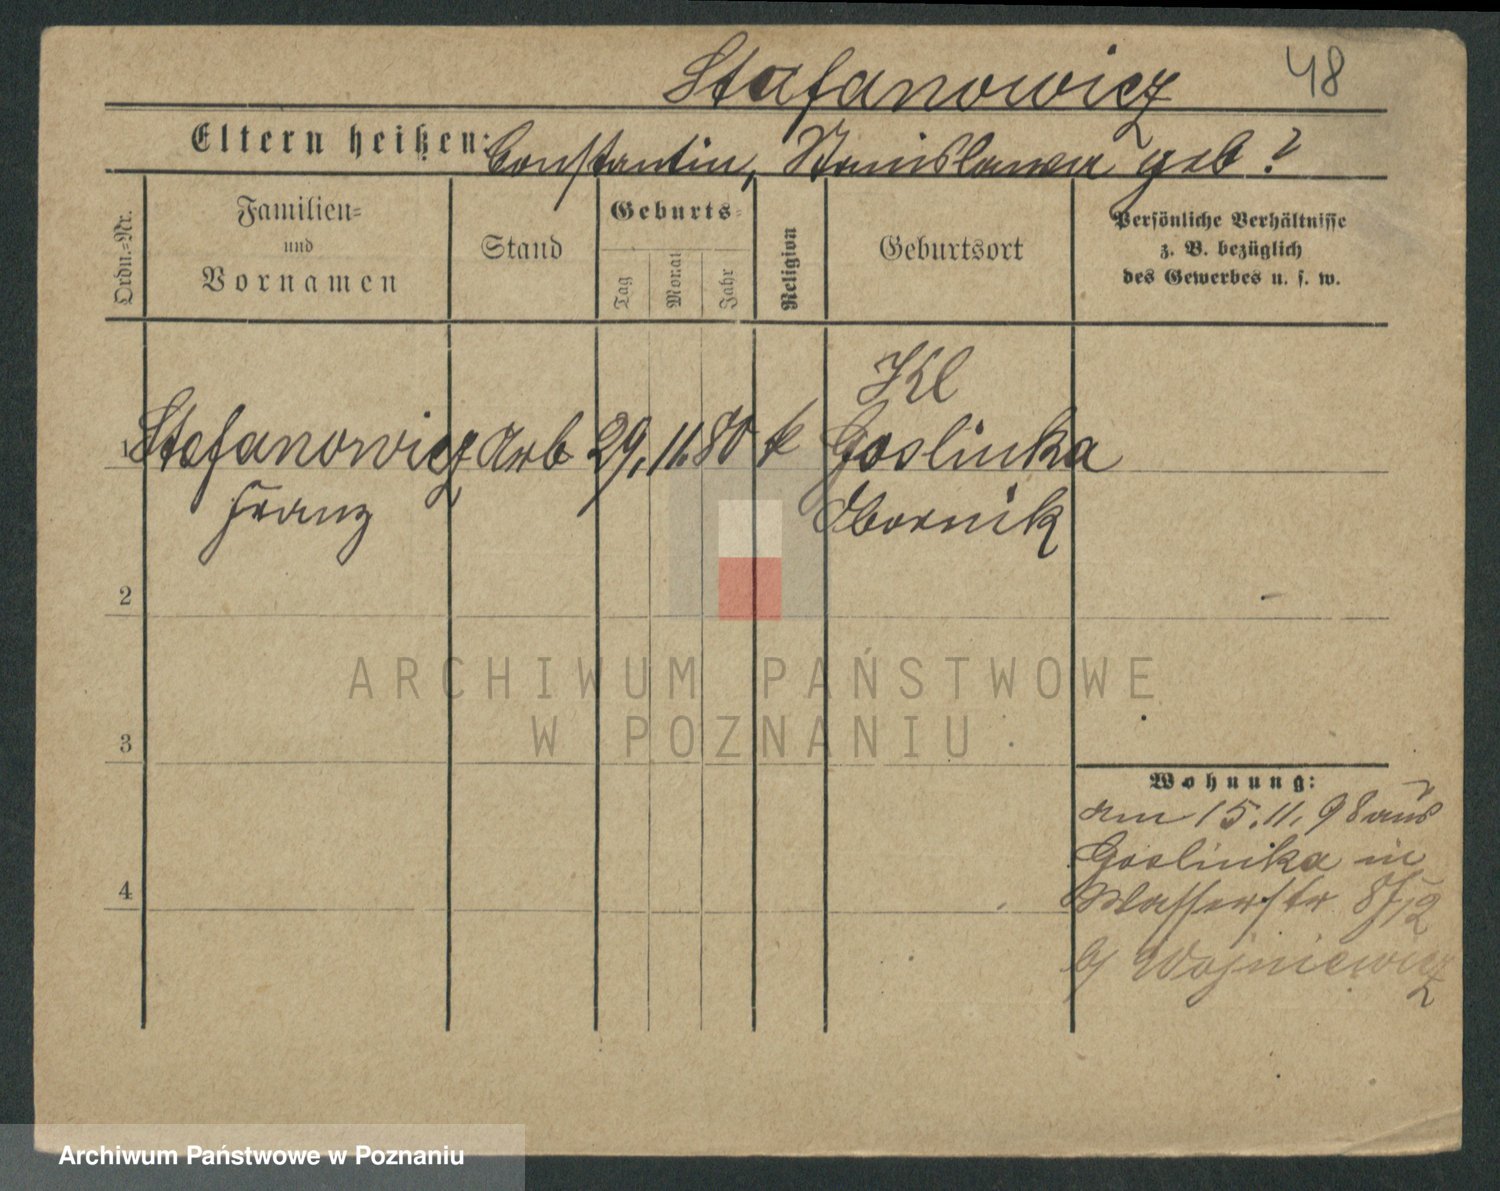 Stafanowicz 48
Eltern heißen: Constantin, Stanislawa geb?
Ordn.=Nr.
Familien=
und
Vornamen
Stand
Geburts=
Tag
Monat
Jahr
Religion
Geburtsort
Persönliche Verhältnisse
z. B. bezüglich
des Gewerbes u. s. w.
Kl
1 Stefanowicz Arb 29. 11. 80 k Goslinka
Franz Obornik
2
ARCHIWUM PAŃSTWOWE
W POZNANIU
3
Wohnung:
am 15.11.98 aus
Goslinka in
4 Wasserstr
b/ Wojniewicz
Archiwum Państwowe w Poznaniu